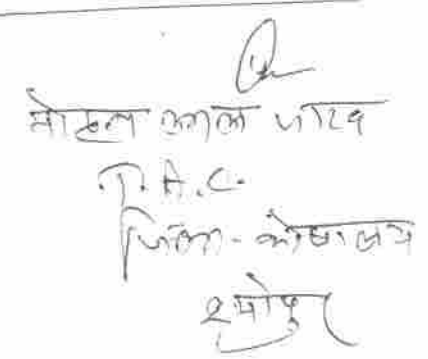 मोहन लाल जाटव
T.A.C.
जिला-कोषालय
श्योपुर